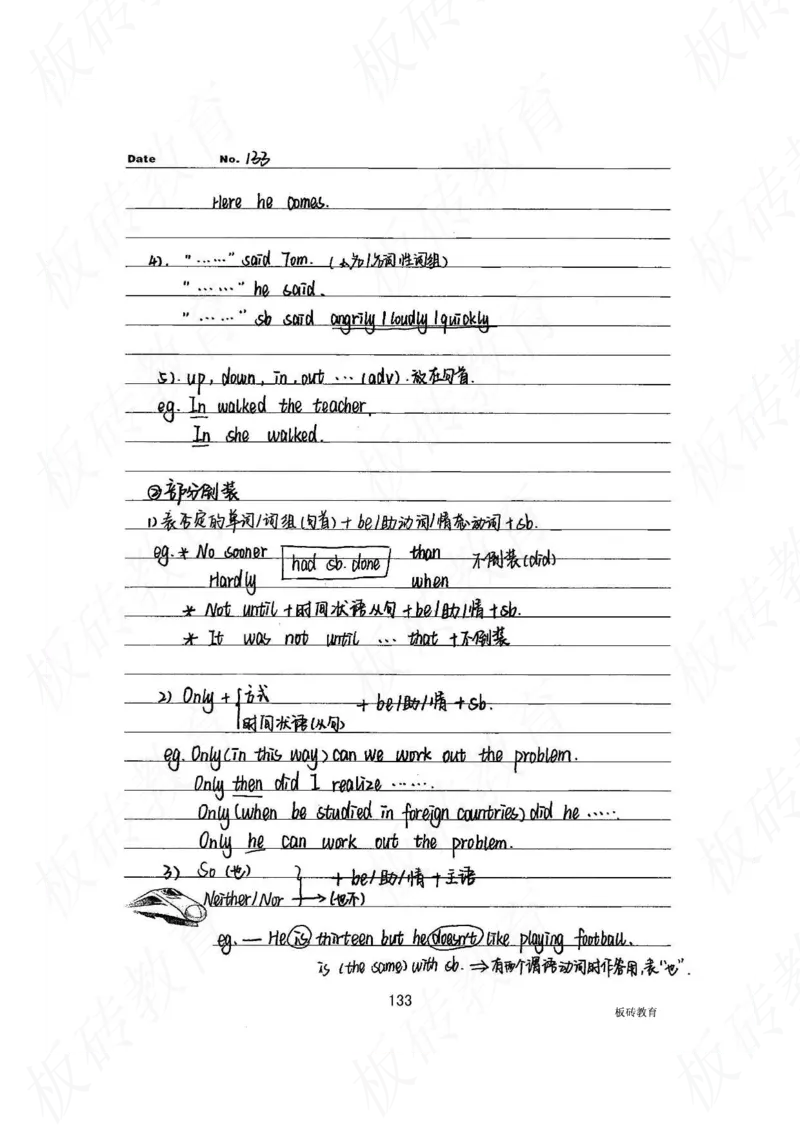 Date No. 133
Here he comes.
4). “……” said Tom. (人名/名词性词组)
“……” he said.
“……” sb said angrily / loudly / quickly
5). up, down, in, out … (adv). 放在句首.
eg. In walked the teacher.
In she walked.
②部分倒装
1) 表否定的单词/词组(句首)+be/助动词/情态动词+sb.
eg. * No sooner had sb. done than 不倒装(did)
Hardly when
* Not until +时间状语从句+be/助/情+sb.
* It was not until … that +不倒装
2) Only + { 方式 + be/助/情 + sb.
时间状语(从句)
eg. Only (in this way) can we work out the problem.
Only then did I realize ……
Only (when be studied in foreign countries) did he ……
Only he can work out the problem.
3) So (也) } + be/助/情 + 主语
Neither/Nor → (也不)
eg. — He is thirteen but he doesn't like playing football.
is (the same) with sb. ⇒ 有两个谓语动词时作答用,表“也”.
133
板砖教育